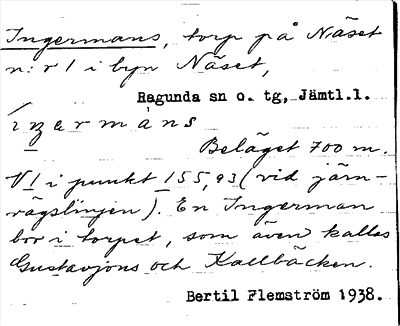 Ingermans, torp på Näset
n:r 1 i byn Näset,
Ragunda sn o. tg, Jämtl.l.
Beläget 700 m.
V 1 i punkt 155,93 (vid järn-
vägslinjen). En Ingerman
bor i torpet, som även kallas
Gustavjöns och Kallbäcken.
Bertil Flemström 1938.